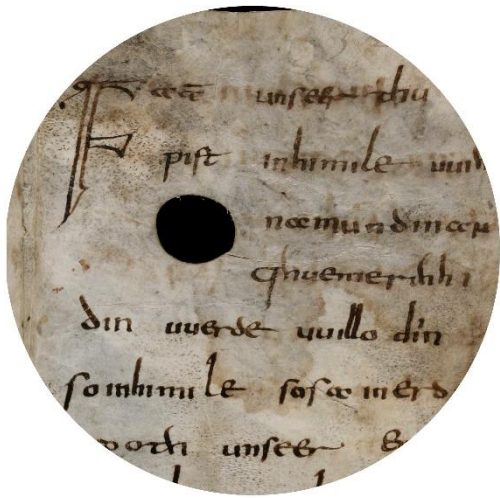 Fater unseer thu
pist inhimile uuihi
namundinan
qhuemerihhi
din uuerde uuillo din
so inhimile sosa inerd
ooth unseer